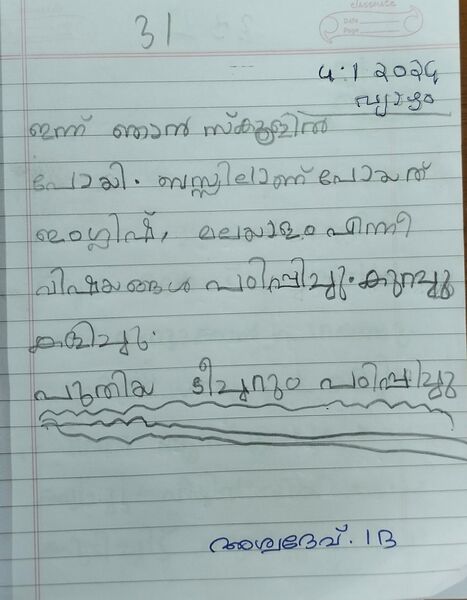 classmate
Date
Page
31
4.1.2024
വ്യാഴം
ഇന്ന് ഞാൻ സ്കൂളിൽ
പോയി. ബസ്സിലാണ് പോയത്
ഇംഗ്ലിഷ്, മലയാളം എന്നീ
വിഷയങ്ങൾ പഠിപ്പിച്ചു. കുറച്ചു
കളിച്ചു.
പുതിയ ടീച്ചറും പഠിപ്പിച്ചു
അശ്വദേവ്. 1D